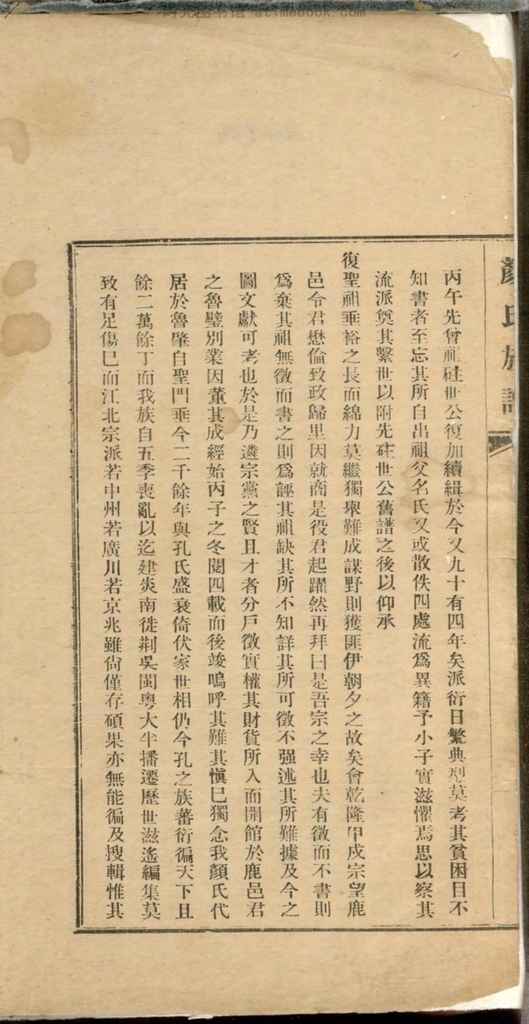 顏氏族譜
丙午先曾祖硅世公復加續緝於今又九十有四年矣派衍日繁典型莫考其貧困目不
知書者至忘其所自出祖父名氏又或散佚四處流爲異籍予小子實滋懼焉思以察其
流派奠其繫世以附先硅世公舊譜之後以仰承
復聖祖垂裕之長而綿力莫繼獨舉難成謀野則獲匪伊朝夕之故矣會乾隆甲戌宗望鹿
邑令君懋倫致政歸里因就商是役君起躍然再拜曰是吾宗之幸也夫有徵而不書則
爲棄其祖無徵而書之則爲誣其祖缺其所不知詳其所可徵不强述其所難據及今之
圖文獻可考也於是乃遴宗黨之賢且才者分戶徵實權其財貨所入而開館於鹿邑君
之魯壁別業因董其成經始丙子之冬閱四載而後竣嗚呼其難其愼巳獨念我顏氏代
居於魯肇自聖門垂今二千餘年與孔氏盛衰倚伏家世相仍今孔之族蕃衍徧天下且
餘二萬餘丁而我族自五季喪亂以迄建炎南徙荆吳閩粵大半播遷歷世滋遙編集莫
致有足傷巳而江北宗派若中州若廣川若京兆雖尙僅存碩果亦無能徧及搜輯惟其